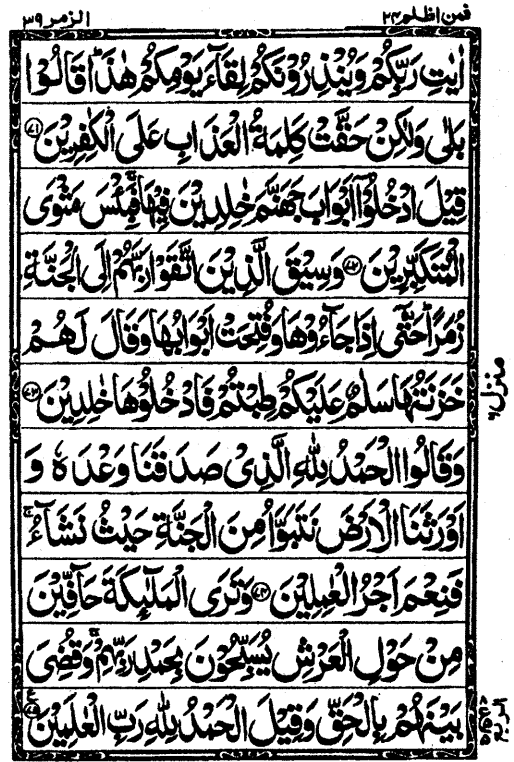 فمن اظلم ٢٤
الزمر ٣٩
اٰيٰتِ رَبِّكُمْ وَيُنْذِرُوْنَكُمْ لِقَآءَ يَوْمِكُمْ هٰذَا ؕ قَالُوْا
بَلٰى وَلٰكِنْ حَقَّتْ كَلِمَةُ الْعَذَابِ عَلَى الْكٰفِرِيْنَ ﴿٧١﴾
قِيْلَ ادْخُلُوْۤا اَبْوَابَ جَهَنَّمَ خٰلِدِيْنَ فِيْهَا ۚ فَبِئْسَ مَثْوَى
الْمُتَكَبِّرِيْنَ ﴿٧٢﴾ وَسِيْقَ الَّذِيْنَ اتَّقَوْا رَبَّهُمْ اِلَى الْجَنَّةِ
زُمَرًا ؕ حَتّٰۤى اِذَا جَآءُوْهَا وَفُتِحَتْ اَبْوَابُهَا وَقَالَ لَهُمْ
خَزَنَتُهَا سَلٰمٌ عَلَيْكُمْ طِبْتُمْ فَادْخُلُوْهَا خٰلِدِيْنَ ﴿٧٣﴾
وَقَالُوا الْحَمْدُ لِلّٰهِ الَّذِيْ صَدَقَنَا وَعْدَهٗ وَ
اَوْرَثَنَا الْاَرْضَ نَتَبَوَّاُ مِنَ الْجَنَّةِ حَيْثُ نَشَآءُ ۚ
فَنِعْمَ اَجْرُ الْعٰمِلِيْنَ ﴿٧٤﴾ وَتَرَى الْمَلٰٓئِكَةَ حَآفِّيْنَ
مِنْ حَوْلِ الْعَرْشِ يُسَبِّحُوْنَ بِحَمْدِ رَبِّهِمْ ۚ وَقُضِيَ
بَيْنَهُمْ بِالْحَقِّ وَقِيْلَ الْحَمْدُ لِلّٰهِ رَبِّ الْعٰلَمِيْنَ ﴿٧٥﴾
ع
منزل ٦